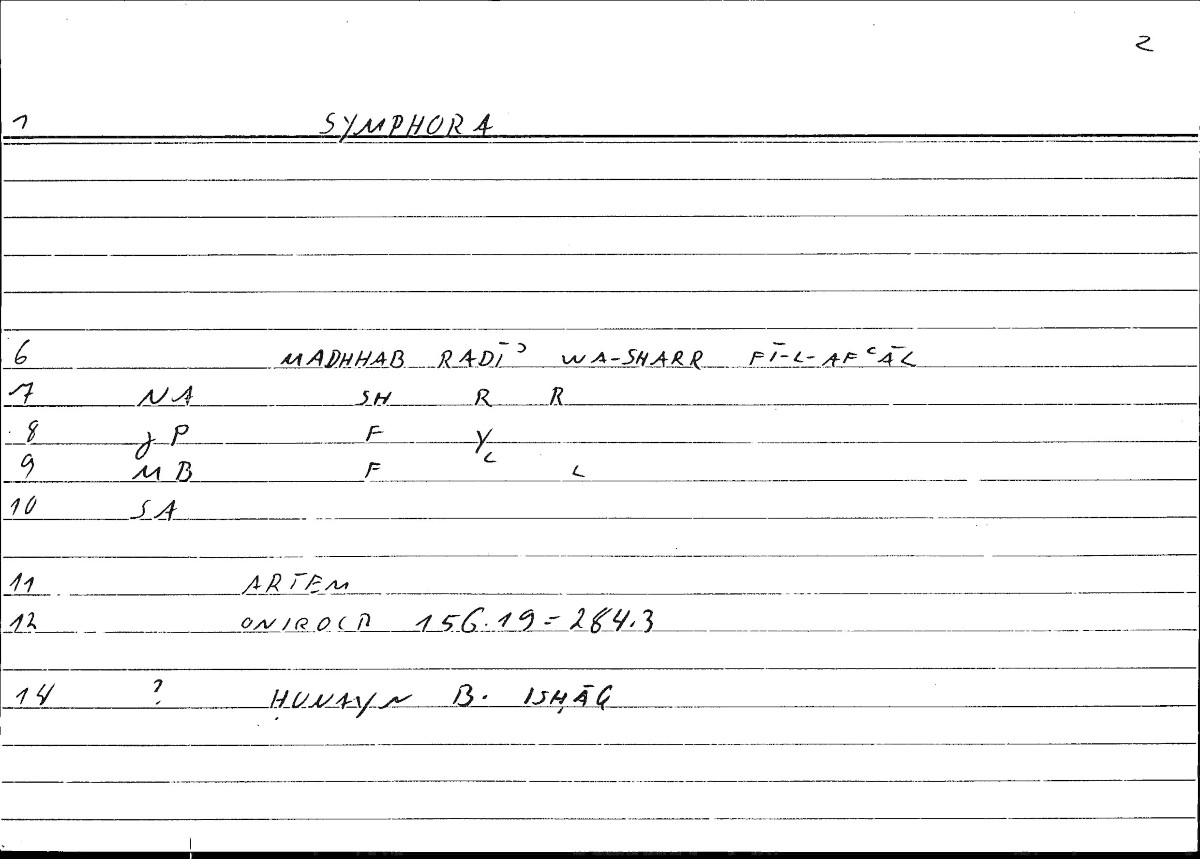 2
1 SYMPHORA
6 MADHHAB RADĪʾ WA-SHARR FĪ-L-AFʿĀL
7 NA SH R R
8 JP F Y
9 MB F L
10 SA
11 ARTEM
12 ONIROCR 156.19=284.3
14 ? ḤUNAYN B. ISḤĀQ